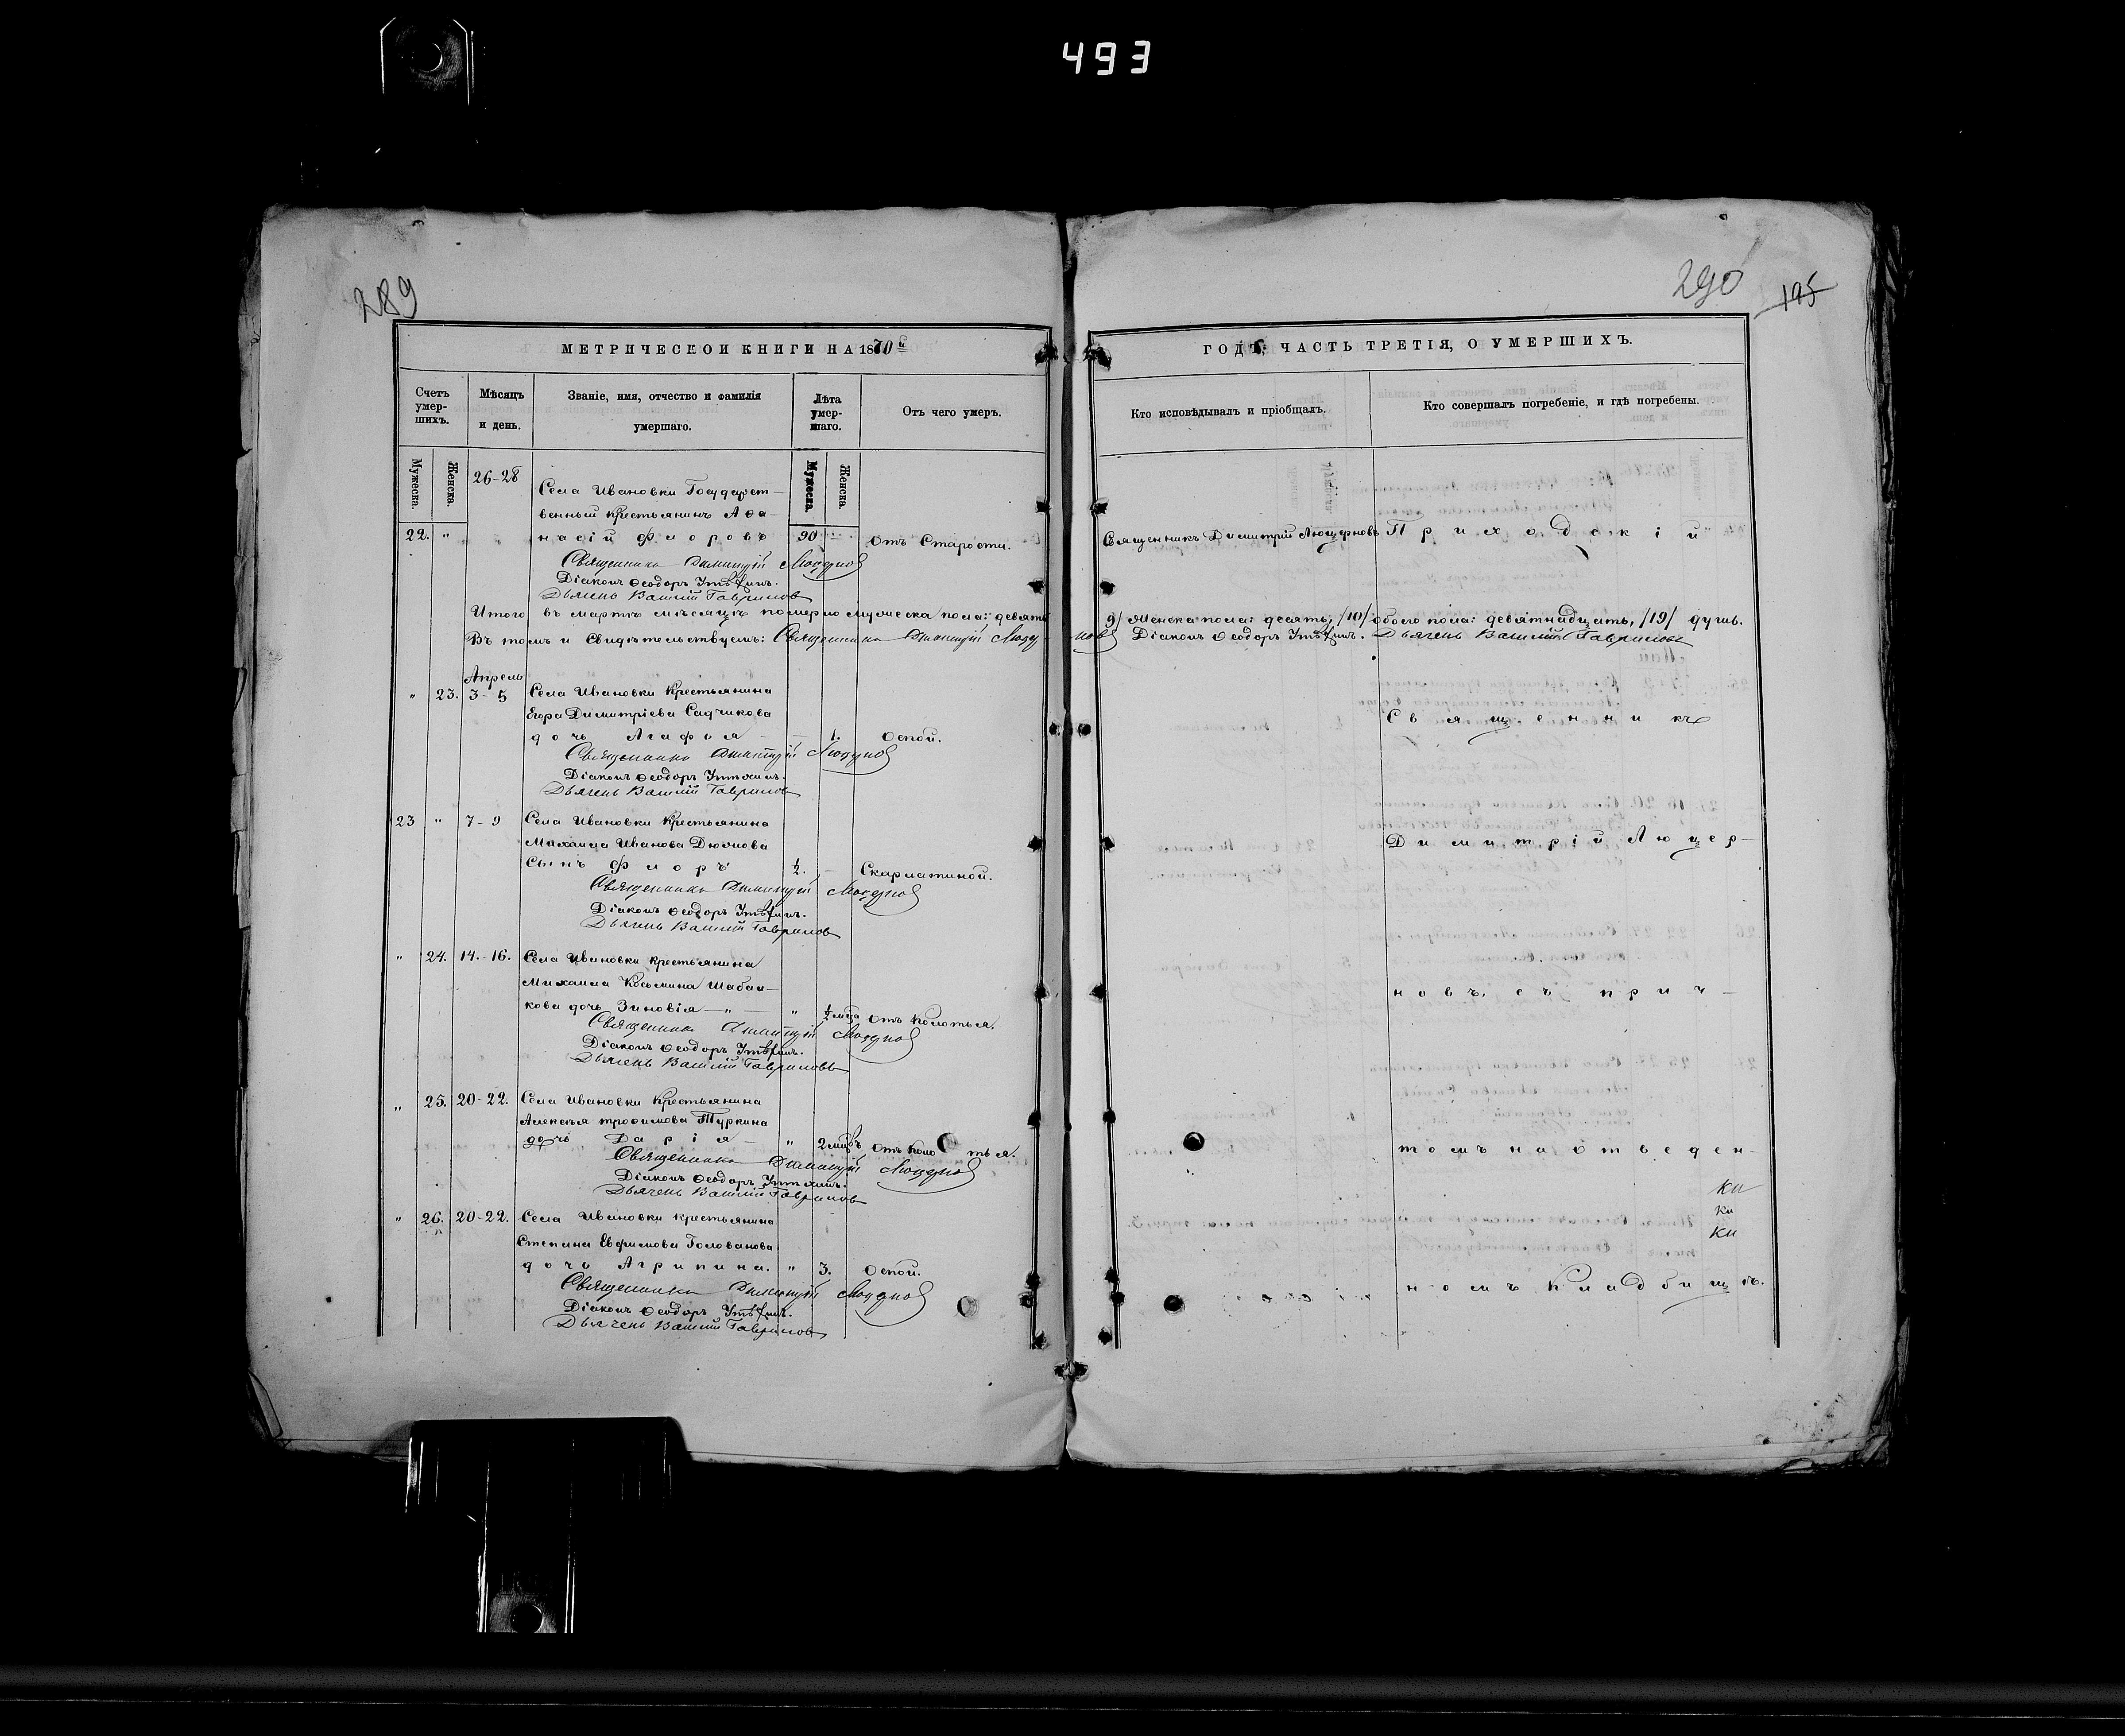 493
289
290
195
МЕТРИЧЕСКОЙ КНИГИ НА 1870й
ГОДЪ, ЧАСТЬ ТРЕТІЯ, О УМЕРШИХЪ.
Счетъ умер-шихъ.
Мѣсяцъ и день.
Званіе, имя, отчество и фамилія умершаго.
Лѣта умер-шаго.
Отъ чего умеръ.
Кто исповѣдывалъ и пріобщалъ.
Кто совершалъ погребеніе, и гдѣ погребены.
Мужеска. Женска. Мужеска. Женска.
26-28
Села Ивановки Государст-
венный крестьянинъ Аѳа-
22. " насій Флоровъ 90 — Отъ Старости. Священникъ Димитрій Люцерновъ Приходскій
Священникъ Димитрій Люцерновъ
Діаконъ Ѳеодоръ
Дьячекъ Василій Гавриловъ
Итого въ мартѣ мѣсяцѣ померло мужеска пола: девять /9/ Женска пола: десять, /10/ обоего пола: девятнадцать, /19/ душъ.
Въ томъ и Свидѣтельствуемъ: Священникъ Димитрій Люцерновъ Діаконъ Ѳеодоръ Дьячекъ Василій Гавриловъ
Апрель
" 23. 3-5 Села Ивановки Крестьянина
Егора Димитріева Садчикова
Священникъ
дочь Агафья — 1. Оспой.
Священникъ Димитрій Люцерновъ
Діаконъ Ѳеодоръ
Дьячекъ Василій Гавриловъ
23 " 7-9 Села Ивановки Крестьянина
Михаила Иванова
Димитрій Люцер-
Сынъ Флоръ ½. — Скарлатиной.
Священникъ Димитрій Люцерновъ
Діаконъ Ѳеодоръ
Дьячекъ Василій Гавриловъ
" 24. 14.-16. Села Ивановки крестьянина
Михаила Косьмина Шабал-
новъ, съ прич-
кова дочь Зиновія — " — " ½ мца Отъ Колотья.
Священникъ Димитрій Люцерновъ
Діаконъ Ѳеодоръ
Дьячекъ Василій Гавриловъ
" 25. 20-22. Села Ивановки Крестьянина
Алексѣя Трофимова Туркина
дочь Дарія — " 2 мцвъ Отъ Колотья.
томъ на отведен-
Священникъ Димитрій Люцерновъ
Діаконъ Ѳеодоръ
Дьячекъ Василій Гавриловъ
" 26. 20-22. Села Ивановки крестьянина
Степана Евфимова Голованова
дочь Агрипина. " 3. Оспой.
номъ Кладбищѣ.
Священникъ Димитрій Люцерновъ
Діаконъ Ѳеодоръ
Дьячекъ Василій Гавриловъ